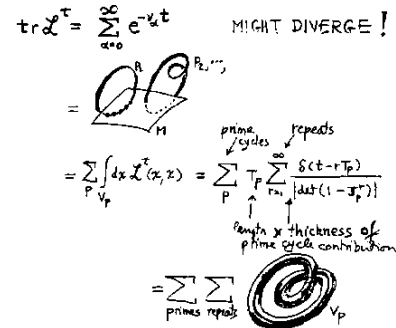 tr ℒᵗ = ∑_{α=0}^{∞} e^{-ν_α t} MIGHT DIVERGE!
= P₁ P₂, ..., M
prime cycles repeats
= ∑_P ∫_{V_P} dx ℒᵗ(x,x) = ∑_P T_P ∑_{r=1}^{∞} δ(t-rT_P) / |det(1-J_P^r)|
length × thickness of
prime cycle contribution
= ∑_{primes} ∑_{repeats} V_P